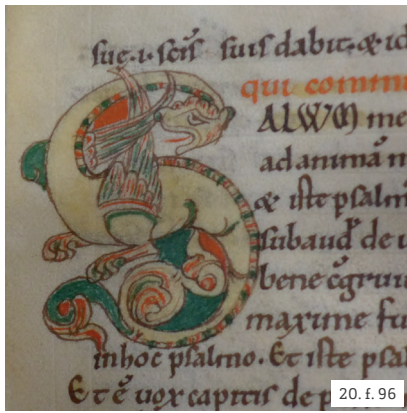 sue. i. scīs suis dabit. & id
qui comm
ALWM me
ad animā
& iste psalm
subaud de
bene cgruu
maxime fu
in hoc psalmo. Et iste psal
Et ē uox capitis de p
20. f. 96